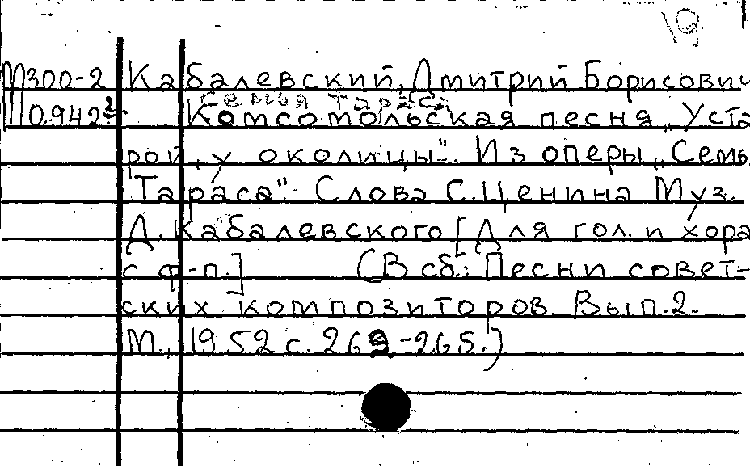 М300-2 Кабалевский, Дмитрий Борисович
П0.942
Семья Тараса
Комсомольская песня „У ста
рой, у околицы". Из оперы „Семь
Тараса". Слова С. Ценина Муз.
Д. Кабалевского [Для гол. и хора
с ф-п.] (В сб.: Песни совет-
ских композиторов. Вып. 2.
М., 1952 с. 26 -265.)